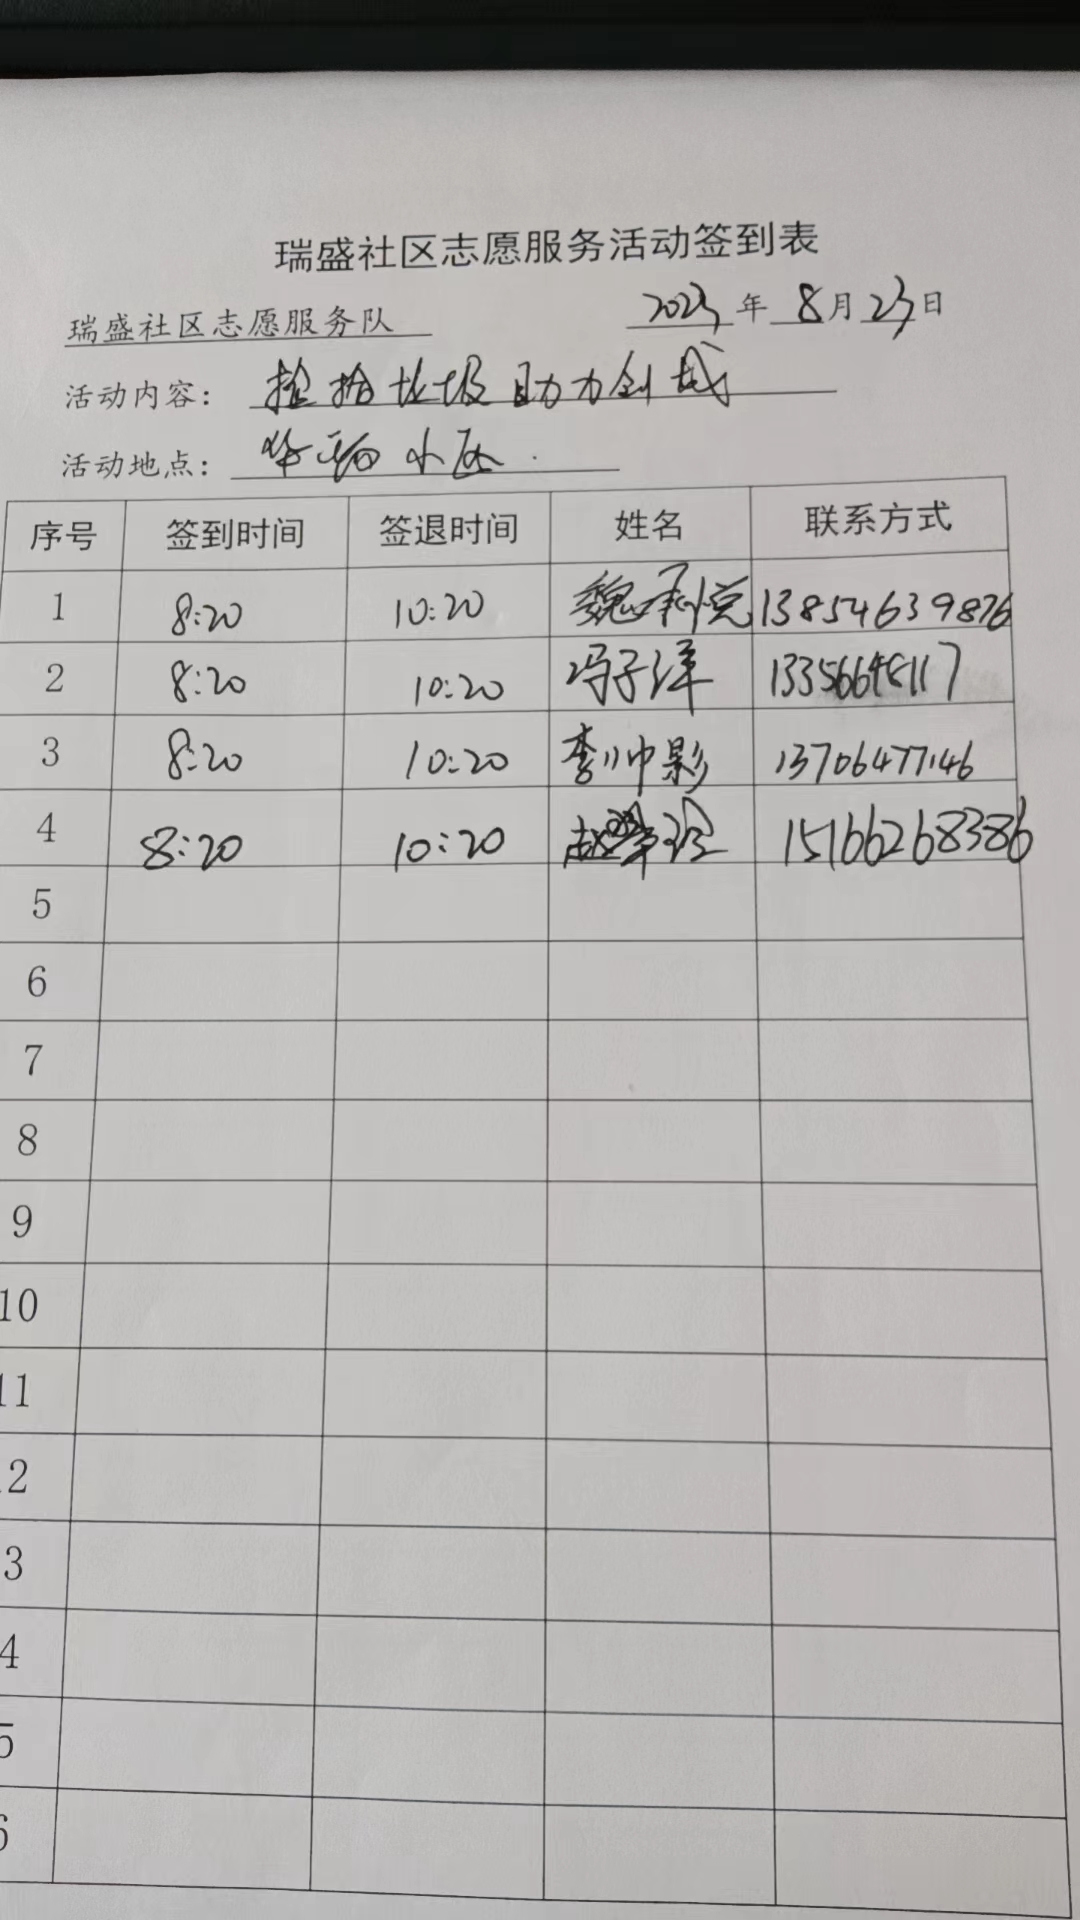 瑞盛社区志愿服务活动签到表
瑞盛社区志愿服务队 2023年 8月23日
活动内容： 捡拾垃圾助力创城
活动地点： 华 小区
序号 签到时间 签退时间 姓名 联系方式
1 8:20 10:20 魏 悦 13854639876
2 8:20 10:20 冯子洋
3 8:20 10:20 李帅影 13706477146
4 8:20 10:20 赵 15166268386
5
6
7
8
9
10
11
2
3
4
5
6